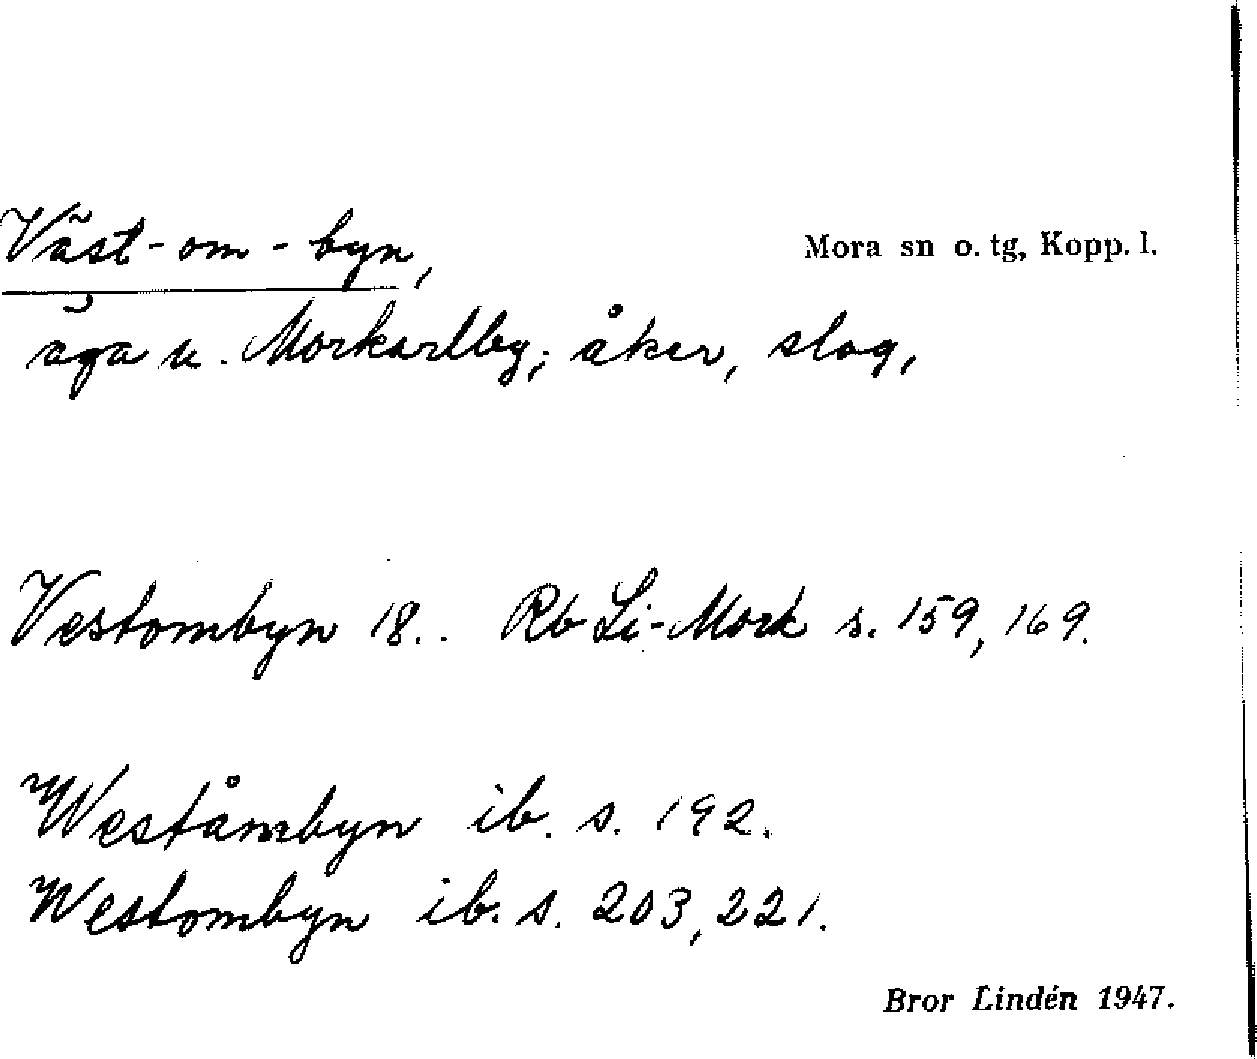 Väst-om-byn,
Mora sn o. tg, Kopp. l.
äga u. Morkarlby; åker, slog,
Vestombyn 18.. Rb Li-Mork s. 159, 169.
Weståmbyn ib. s. 192.
Westombyn ib. s. 203, 221.
Bror Lindén 1947.